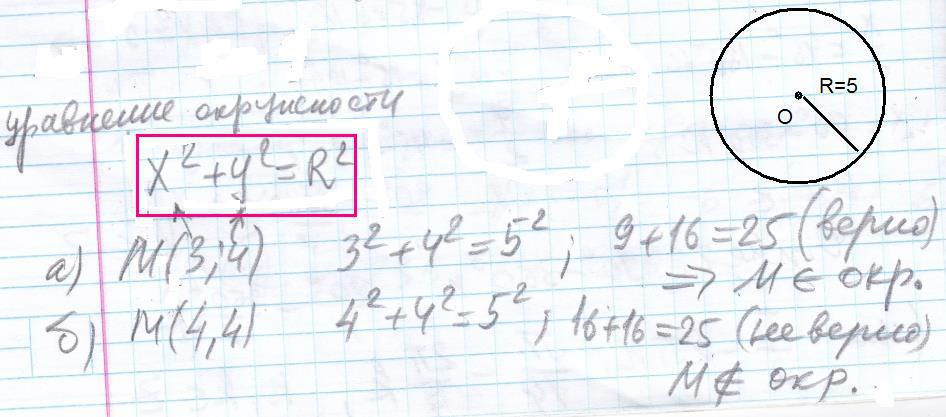 R=5
O
уравнение окружности
X² + y² = R²
а) M(3; 4) 3² + 4² = 5² ; 9 + 16 = 25 (верно)
=> M ∈ окр.
б) M(4, 4) 4² + 4² = 5² ; 16 + 16 = 25 (не верно)
M ∉ окр.